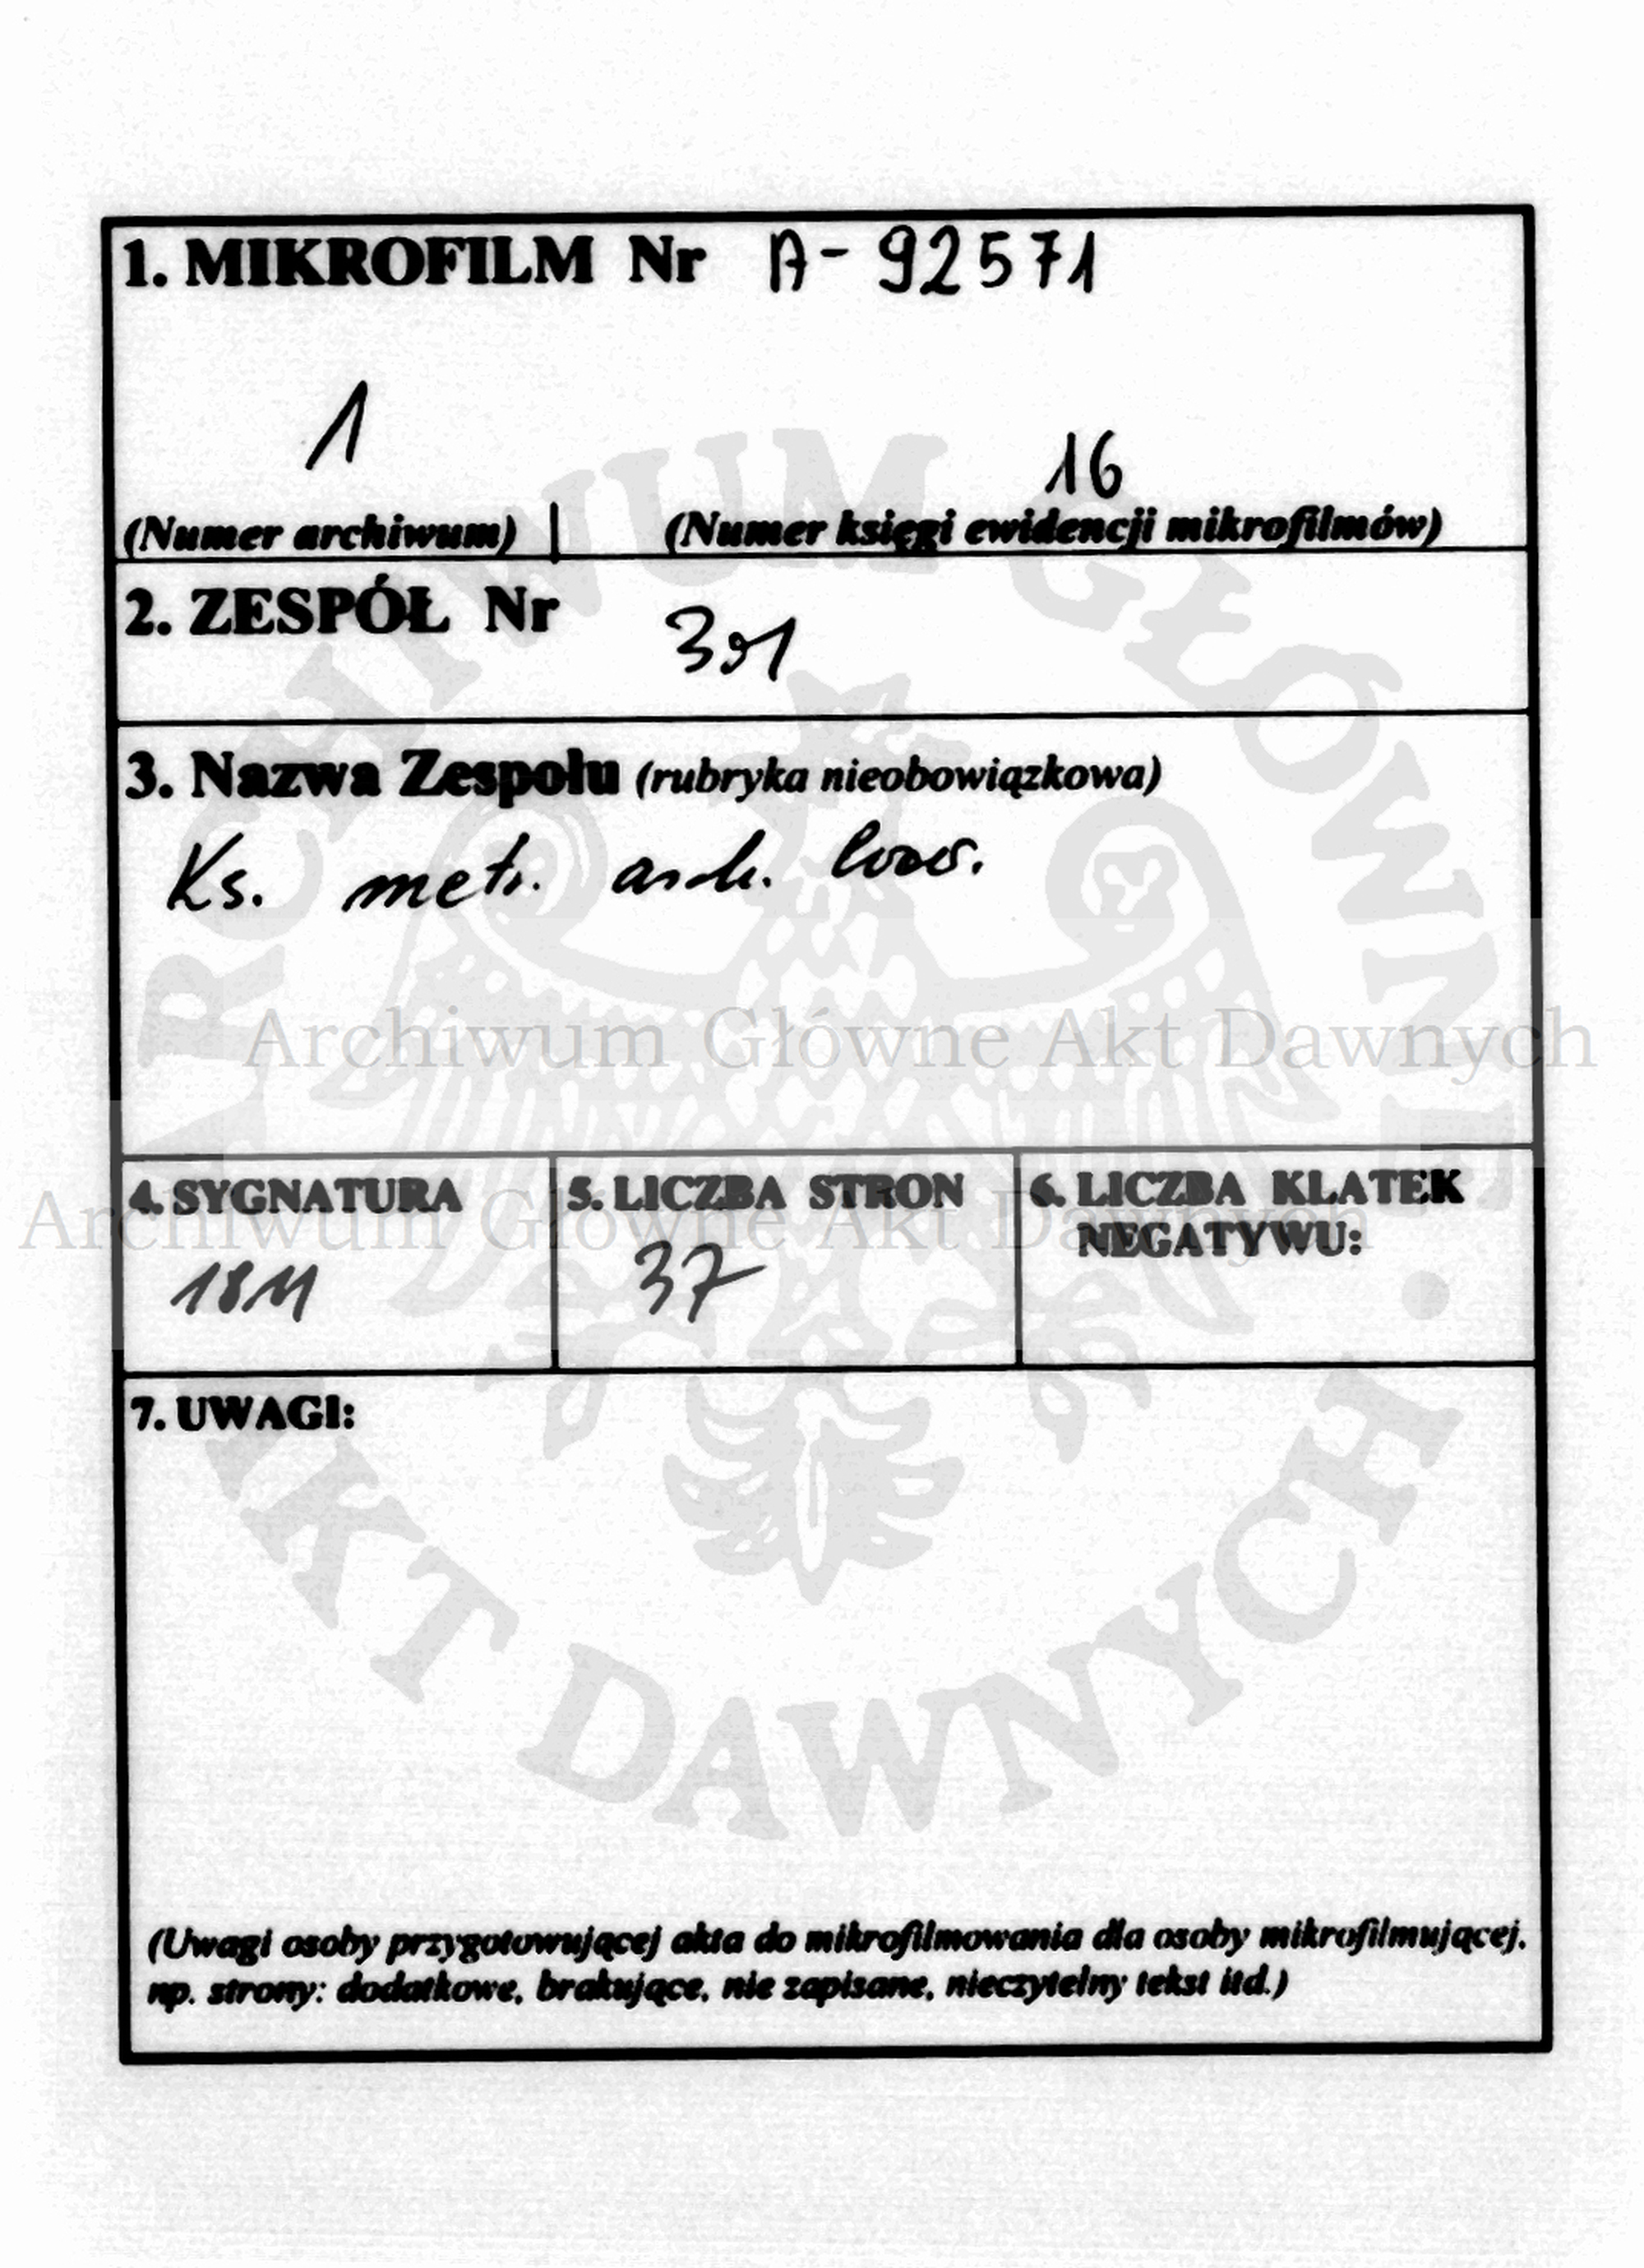 1. MIKROFILM Nr A-92571
1 16
(Numer archiwum) (Numer księgi ewidencji mikrofilmów)
2. ZESPÓŁ Nr 301
3. Nazwa Zespołu (rubryka nieobowiązkowa)
Ks. metr. arch.
Archiwum Główne Akt Dawnych
4. SYGNATURA 5. LICZBA STRON 6. LICZBA KLATEK
NEGATYWU:
Archiwum Główne Akt Dawnych
1811 37
7. UWAGI:
(Uwagi osoby przygotowującej akta do mikrofilmowania dla osoby mikrofilmującej.
np. strony: dodatkowe, brakujące, nie zapisane, nieczytelny tekst itd.)
ARCHIWUM GŁÓWNE AKT DAWNYCH